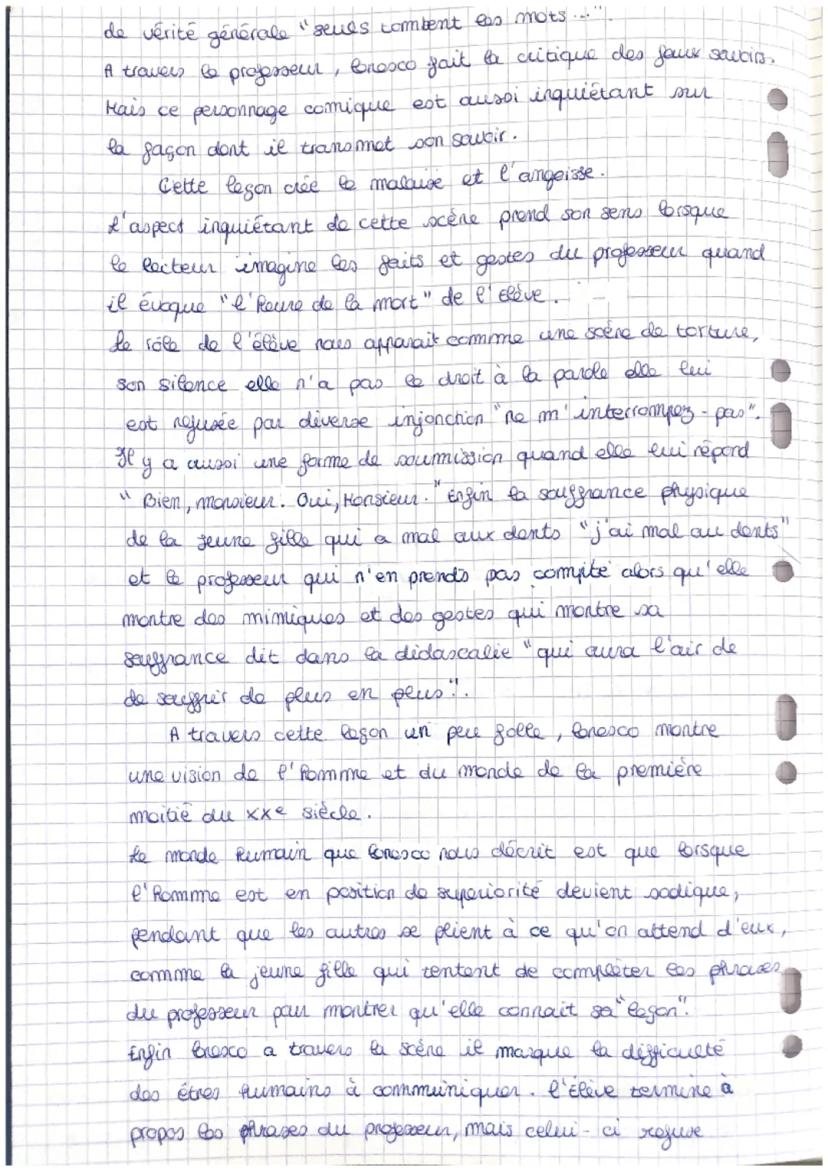 de vérité générale "seules tombent les mots..."
A travers le professeur, Ionesco fait la critique des faux savoirs.
Mais ce personnage comique est aussi inquiétant sur
la façon dont il transmet son savoir.
Cette leçon crée le malaise et l'angoisse.
L'aspect inquiétant de cette scène prend son sens lorsque
le lecteur imagine les faits et gestes du professeur quand
il évoque "l'heure de la mort" de l'élève.
Le rôle de l'élève nous apparait comme une scène de torture,
son silence elle n'a pas le droit à la parole elle lui
est refusée par diverse injonction "ne m'interrompez-pas".
Il y a aussi une forme de soumission quand elle lui répond
"Bien, monsieur. Oui, Monsieur." Enfin la souffrance physique
de la jeune fille qui a mal aux dents "j'ai mal au dents"
et le professeur qui n'en prends pas compte alors qu'elle
montre des mimiques et des gestes qui montre sa
souffrance dit dans la didascalie "qui aura l'air de
de souffrir de plus en plus".
A travers cette leçon un peu folle, Ionesco montre
une vision de l'homme et du monde de la première
moitié du XXe siècle.
Le monde humain que Ionesco nous décrit est que lorsque
l'homme est en position de supériorité devient sadique,
pendant que les autres se plient à ce qu'on attend d'eux,
comme la jeune fille qui tentent de compléter les phrases
du professeur pour montrer qu'elle connait sa "leçon".
Enfin Ionesco a travers la scène il marque la difficulté
des êtres humains à communiquer. l'élève termine à
propos les phrases du professeur, mais celui-ci refuse